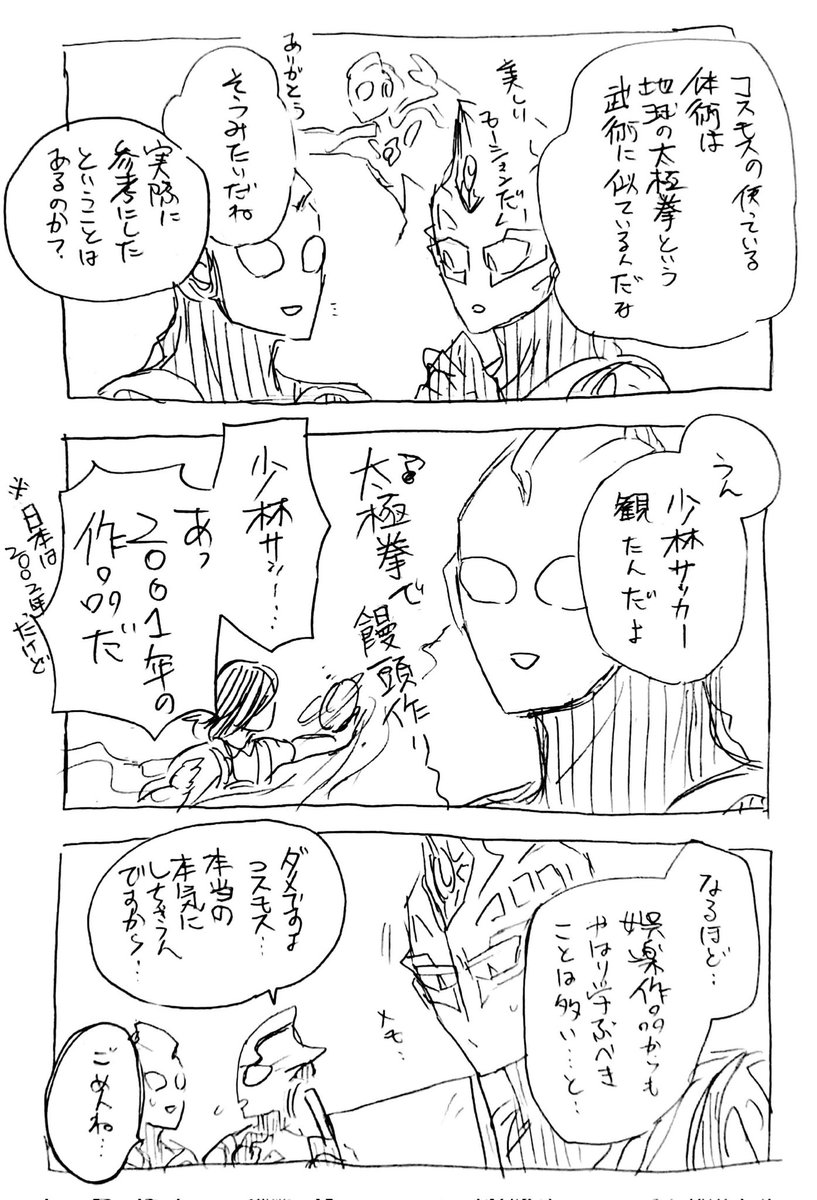 コスモスの使っている
体術は
地球の太極拳という
武術に似ているんだな
美しい
モーションだ…
ありがとう
そうみたいだね
実際に
参考にした
ということは
あるのか?
うん
少林サッカー
観たんだよ
太極拳で饅頭作り
少林サッ…
あっ
2001年の
作品だ
※日本は
2002年だったけど
なるほど…
娯楽作品からも
やはり学ぶべき
ことは多い…と…
メモ…
ダメですよ
コスモス…
本当の
本気に
しちゃうん
ですから…
ごめんね…